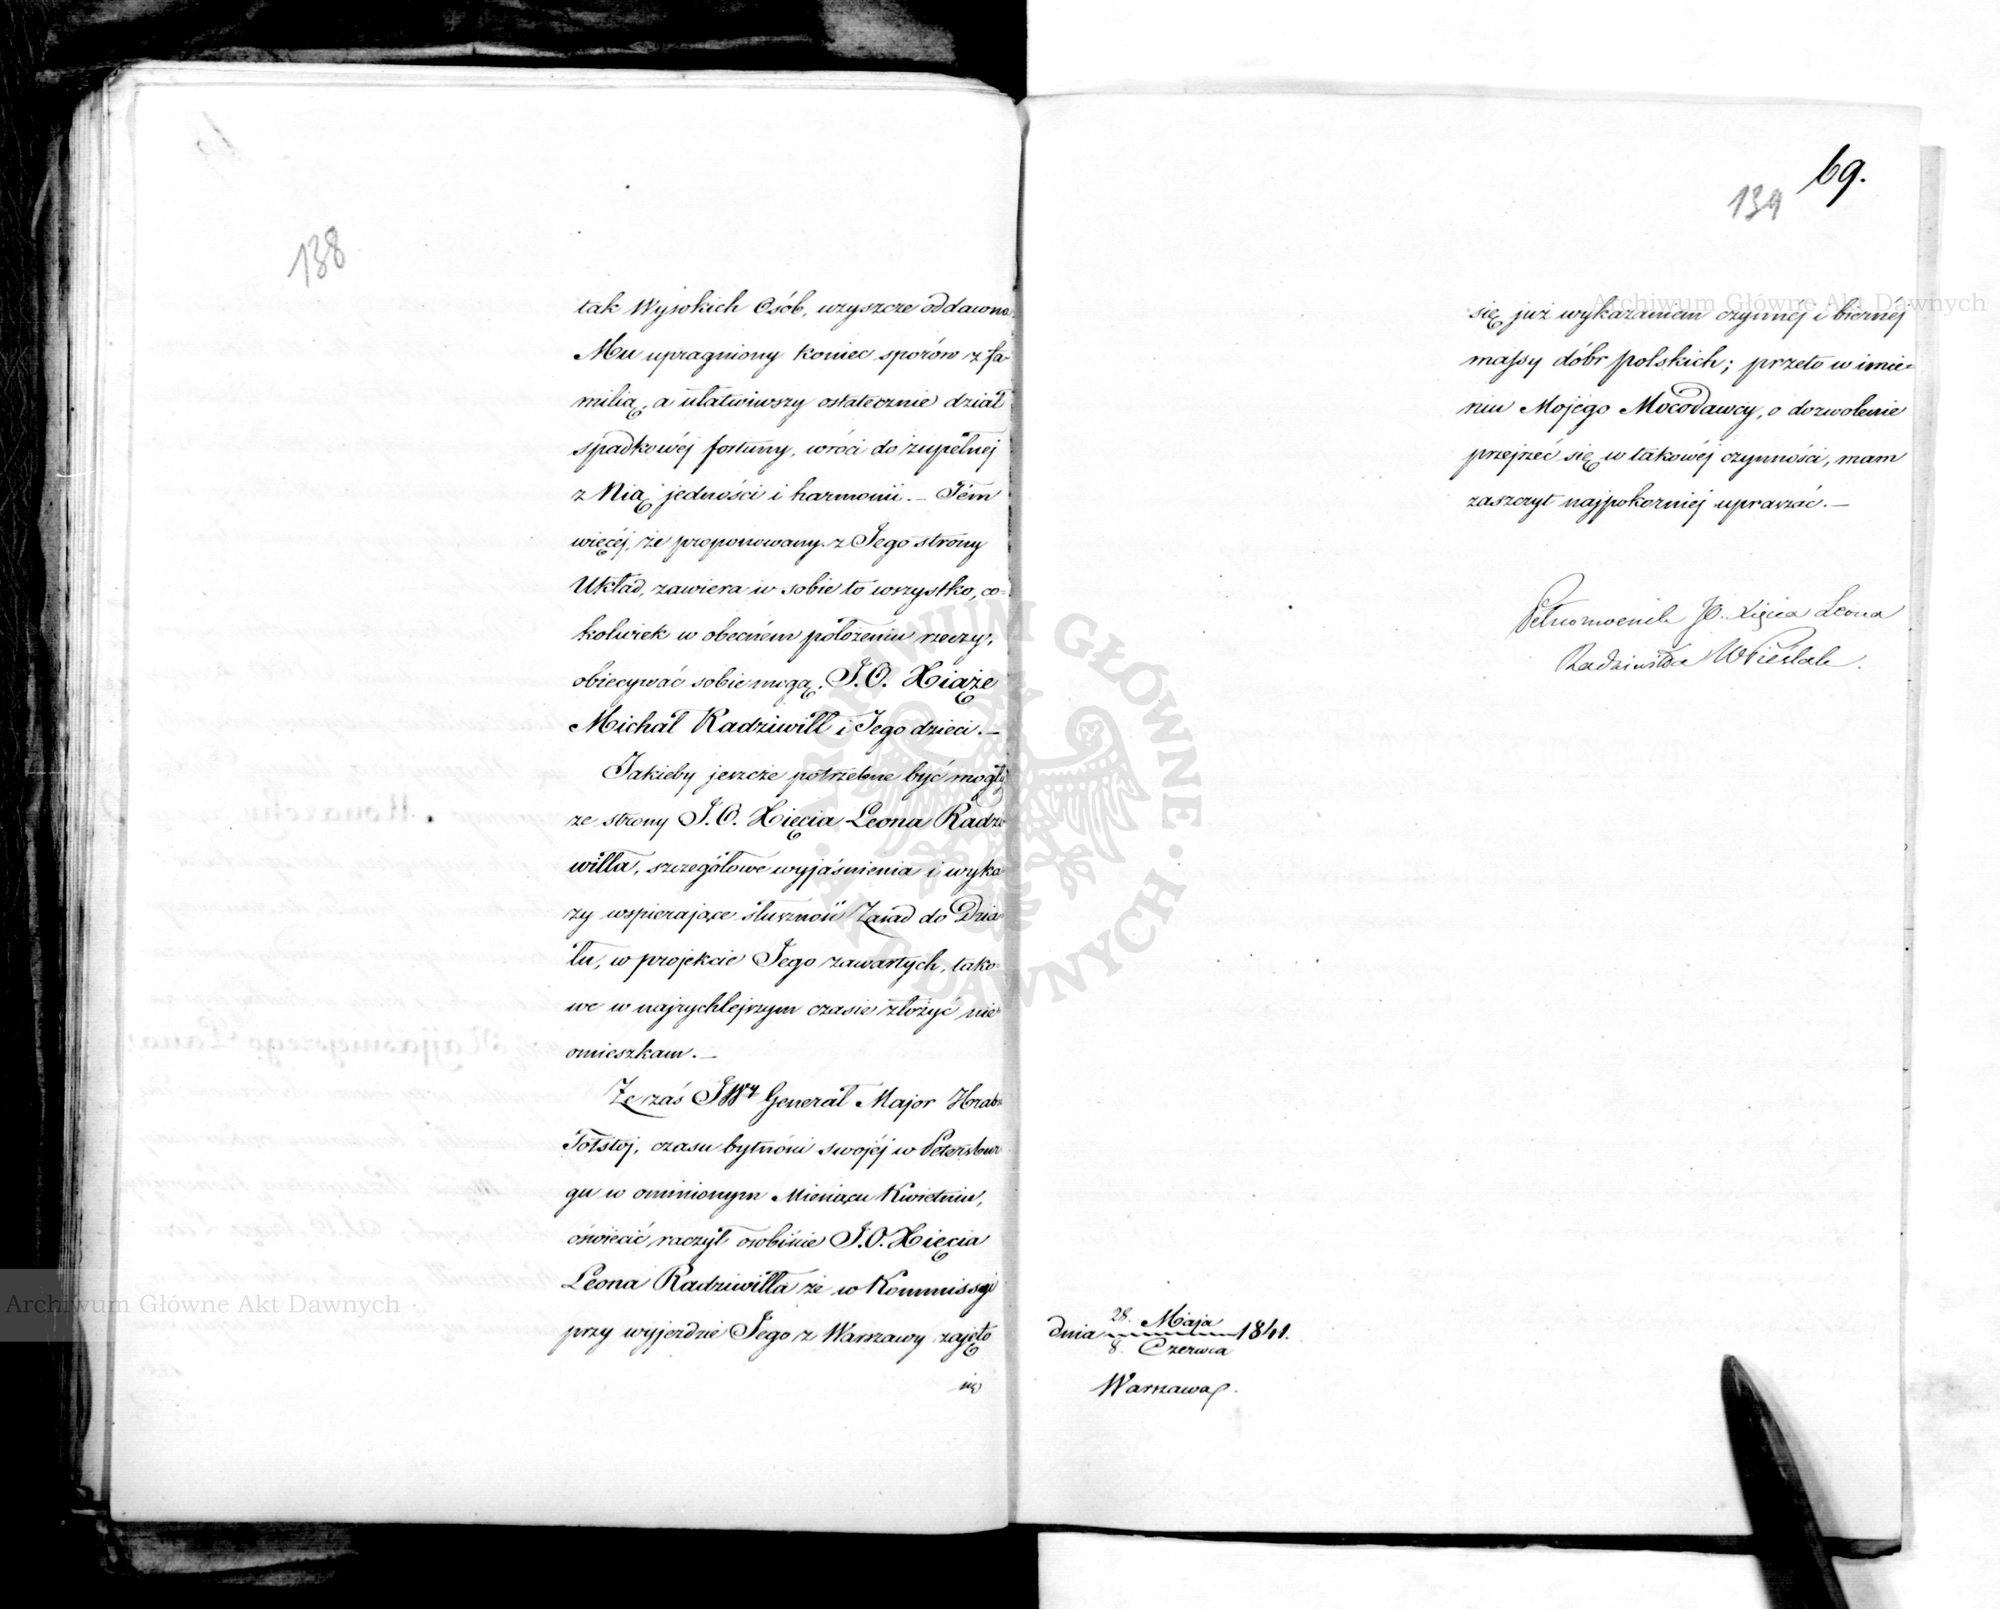 138
tak Wysokich Osób, uzyszcze oddawna
Mu upragniony koniec sporów z fa-
milią, a ułatwiwszy ostatecznie dział
spadkowéj fortuny, wróci do zupełnej
z Nią jedności i harmonii. — Tém
więcéj, że proponowany z Jego strony
Układ, zawiera w sobie to wszystko, co-
kolwiek w obecném położeniu rzeczy,
obiecywać sobie mogą, J.O. Xiąże
Michał Radziwiłł i Jego dzieci. —
Jakieby jeszcze potrzebne być mogły
ze strony J.O. Xięcia Leona Radzi
wiłła, szczegółowe wyjaśnienia i wyka
zy wspierające słuszność Zasad do Dzia
łu, w projekcie Jego zawartych, tako-
we w najrychlejszym czasie złożyć nie
omieszkam. —
Że zaś JWy Generał Major Hrabia
Tołstoj, czasu bytności swojéj w Petersbur
gu w ominionym Miesiącu Kwietniu,
oświecić raczył osobiście J.O. Xięcia
Leona Radziwiłła że w Kommissyi
przy wyjezdzie Jego z Warszawy zajęto
się
69.
139
się już wykazaniem czynnéj i biernéj
massy dóbr polskich; przeto w imie-
niu Mojego Mocodawcy, o dozwolenie
przejrzéć się w takowéj czynności, mam
zaszczyt najpokorniej upraszać. —
Pełnomocnik JO. Xięcia Leona
Radziwiłła
dnia 28. Maja 1841.
8. Czerwca
Warszawa.
Archiwum Główne Akt Dawnych
Archiwum Główne Akt Dawnych
ARCHIWUM GŁÓWNE AKT DAWNYCH